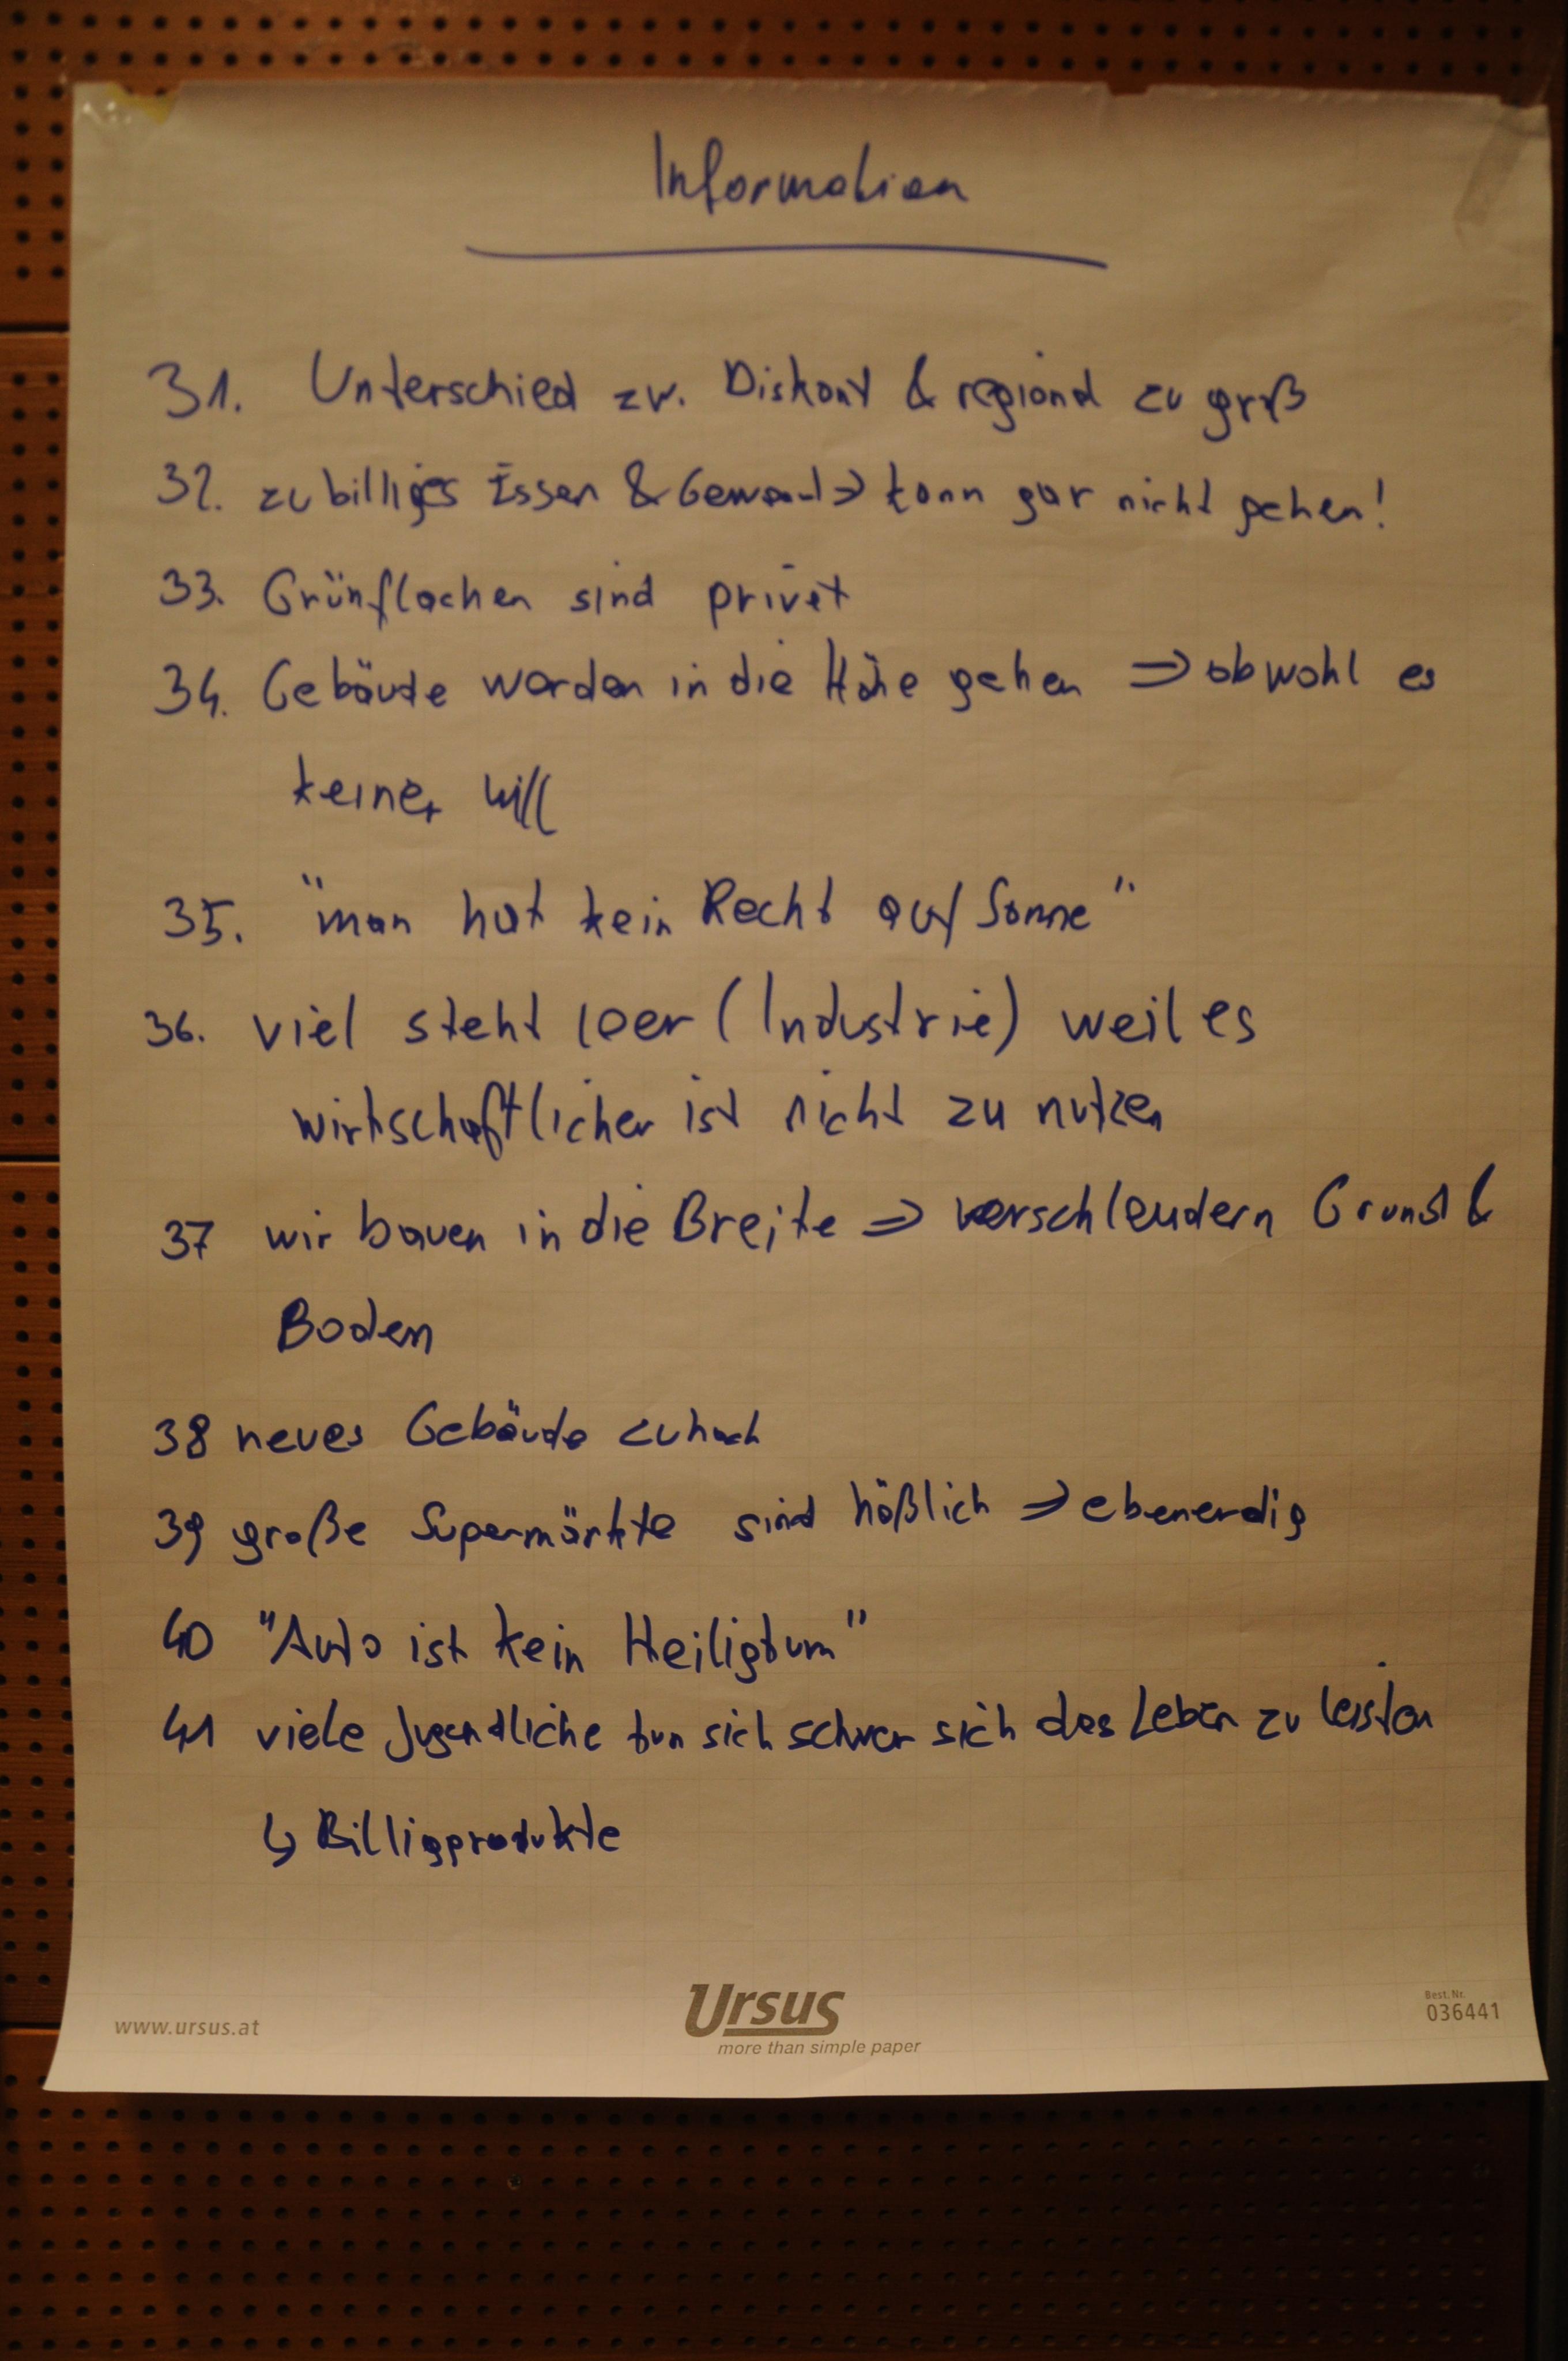 Information
31. Unterschied zw. Diskont & regional zu groß
32. zu billiges Essen & Gewand => kann gar nicht gehen!
33. Grünflachen sind privat
34. Gebäude werden in die Höhe gehen => obwohl es
keiner will
35. "man hat kein Recht auf Sonne"
36. viel steht leer (Industrie) weil es
wirtschaftlicher ist nicht zu nutzen
37 wir bauen in die Breite => verschleudern Grund &
Boden
38 neues Gebäude zu hoch
39 große Supermärkte sind häßlich => ebenerdig
40 "Auto ist kein Heiligtum"
41 viele Jugendliche tun sich schwer sich das Leben zu leisten
↳ Billigprodukte
www.ursus.at
Ursus
more than simple paper
Best. Nr.
036441